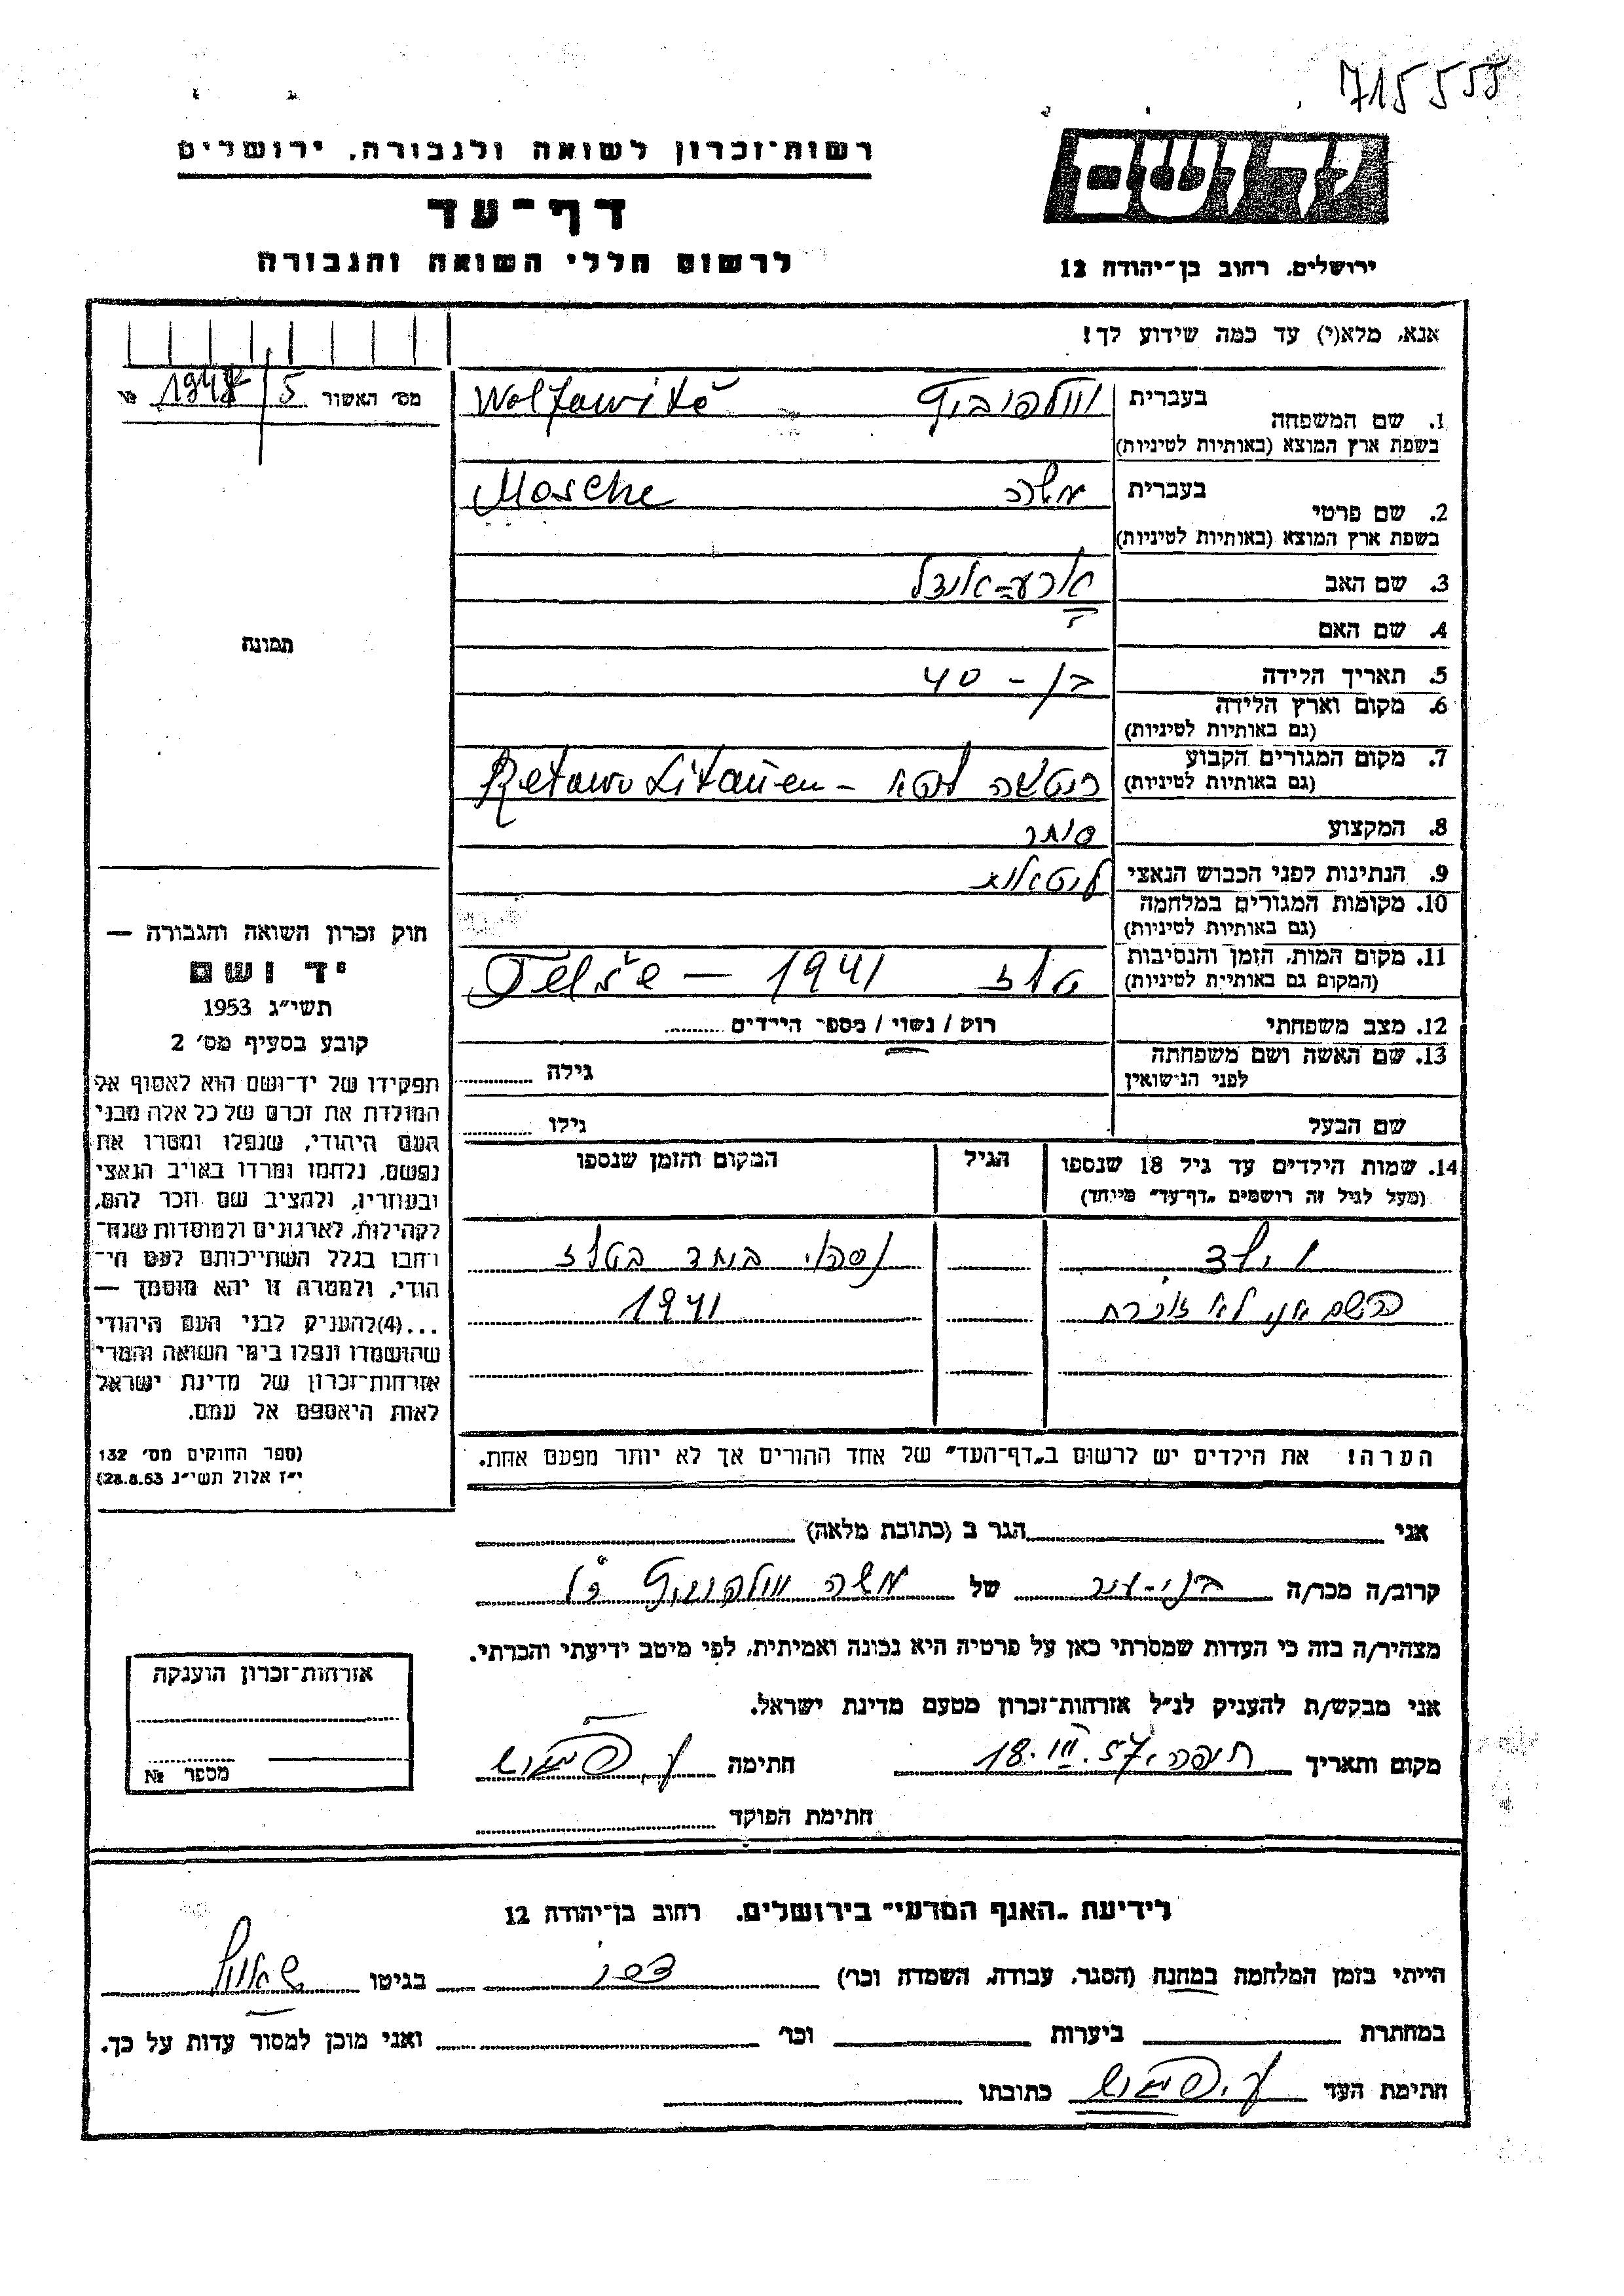 715555
יד ושם
רשות־זכרון לשואה ולגבורה, ירושלים
דף־עד
לרשום חללי השואה והגבורה
ירושלים, רחוב בן־יהודה 12
אנא, מלא(י) עד כמה שידוע לך!
מס׳ האשור 5
1. שם המשפחה בעברית
בשפת ארץ המוצא (באותיות לטיניות)
וולפוביץ Wolfowitě
2. שם פרטי בעברית
בשפת ארץ המוצא (באותיות לטיניות)
משה Mosche
3. שם האב
4. שם האם
5. תאריך הלידה בן - 40
6. מקום וארץ הלידה
(גם באותיות לטיניות)
7. מקום המגורים הקבוע
(גם באותיות לטיניות)
ליטא - Retowo Litauen
8. המקצוע סוחר
9. הנתינות לפני הכבוש הנאצי
10. מקומות המגורים במלחמה
(גם באותיות לטיניות)
11. מקום המות, הזמן והנסיבות
(המקום גם באותיות לטיניות)
טלז Telše - 1941
12. מצב משפחתי רוק / נשוי / מספר הילדים
13. שם האשה ושם משפחתה
לפני הנישואין
גילה
שם הבעל גילו
14. שמות הילדים עד גיל 18 שנספו
(מעל לגיל זה רושמים „דף־עד״ מיוחד)
הגיל
המקום והזמן שנספו
1 ילד נספו ביחד בטלז
השם אני לא זוכרת 1941
הערה! את הילדים יש לרשום ב„דף־העד״ של אחד ההורים אך לא יותר מפעם אחת.
תמונה
חוק זכרון השואה והגבורה —
יד ושם
תשי״ג 1953
קובע בסעיף מס׳ 2
תפקידו של יד־ושם הוא לאסוף אל
המולדת את זכרם של כל אלה מבני
העם היהודי, שנפלו ומסרו את
נפשם, נלחמו ומרדו באויב הנאצי
ובעוזריו, ולהציב שם וזכר להם,
לקהילות, לארגונים ולמוסדות שנח־
רבו בגלל השתייכותם לעם הי־
הודי, ולמטרה זו יהא מוסמך —
...(4)להעניק לבני העם היהודי
שהושמדו ונפלו בימי השואה והמרי
אזרחות־זכרון של מדינת ישראל
לאות היאספם אל עמם.
(ספר החוקים מס׳ 132
י״ז אלול תשי״ג 28.8.53)
אני הגר ב (כתובת מלאה)
קרוב/ה מכר/ה של משה וולפוביץ ז״ל
מצהיר/ה בזה כי העדות שמסרתי כאן על פרטיה היא נכונה ואמיתית, לפי מיטב ידיעתי והכרתי.
אני מבקש/ת להעניק לנ״ל אזרחות־זכרון מטעם מדינת ישראל.
מקום ותאריך חיפה, 18.III.57 חתימה
חתימת הפוקד
אזרחות־זכרון הוענקה
מספר №
לידיעת „האגף המדעי״ בירושלים, רחוב בן־יהודה 12
הייתי בזמן המלחמה במחנה (הסגר, עבודה, השמדה וכו׳) בגיטו
במחתרת ביערות וכו׳ ואני מוכן למסור עדות על כך.
חתימת העד כתובתו